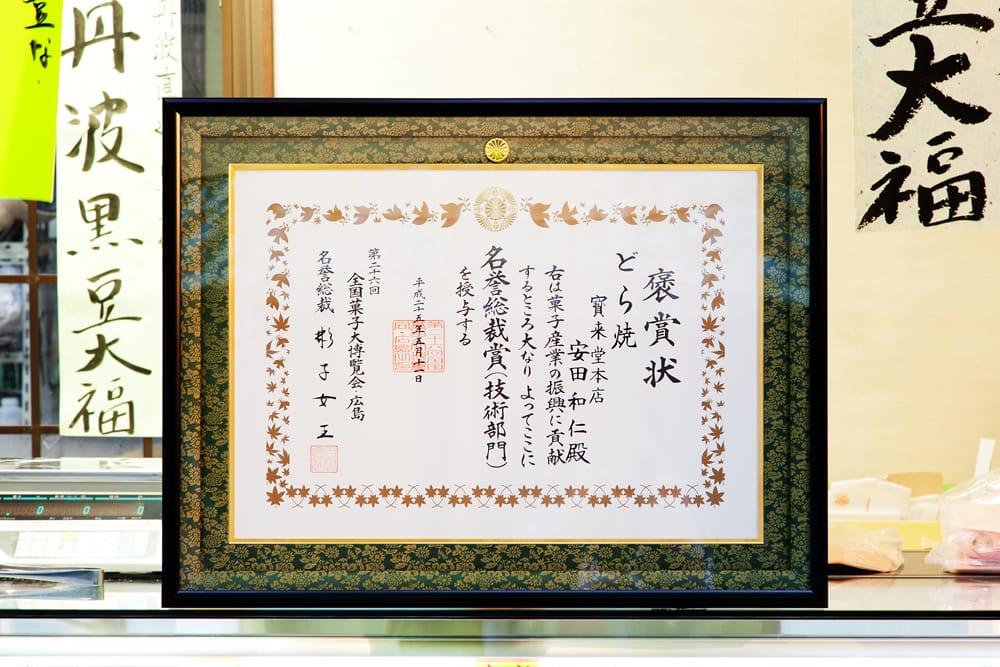 褒賞状
どら焼
寳来堂本店
安田和仁殿
右は菓子産業の振興に貢献
するところ大なり よってここに
名誉総裁賞(技術部門)
を授与する
平成二十五年五月十一日
第二十六回
全国菓子大博覧会・広島
名誉総裁 彬子女王
豆大福
丹波黒豆大福
豆な